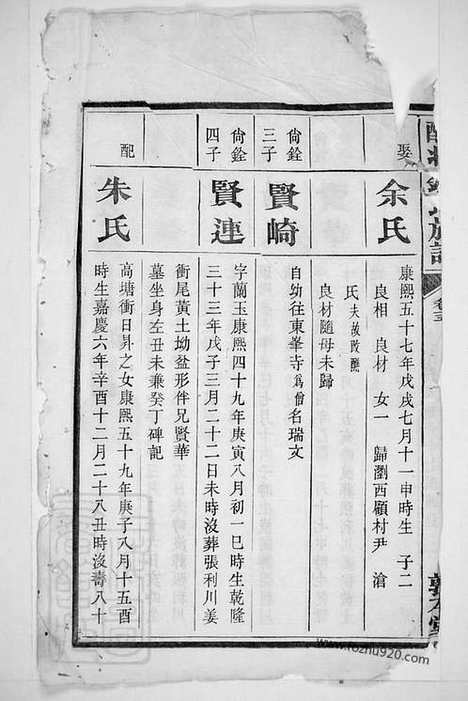 娶
余氏
康熙五十七年戊戌七月十一申時生 子二
良相 良材 女一 歸瀏西顧村尹 滄
氏夫故改醮
良材隨母未歸
尙銓
三子
賢崎
自幼往東峯寺爲僧名瑞文
尙銓
四子
賢連
字蘭玉康熙四十九年庚寅八月初一巳時生乾隆
三十三年戊子三月二十二日未時沒葬張利川姜
衝尾黃土坳盆形伴兄賢華
墓坐身左丑未兼癸丁碑記
配
朱氏
高塘衝日昇之女康熙五十九年庚子八月十五酉
時生嘉慶六年辛酉十二月二十八丑時沒壽八十
www.rozhu920.com